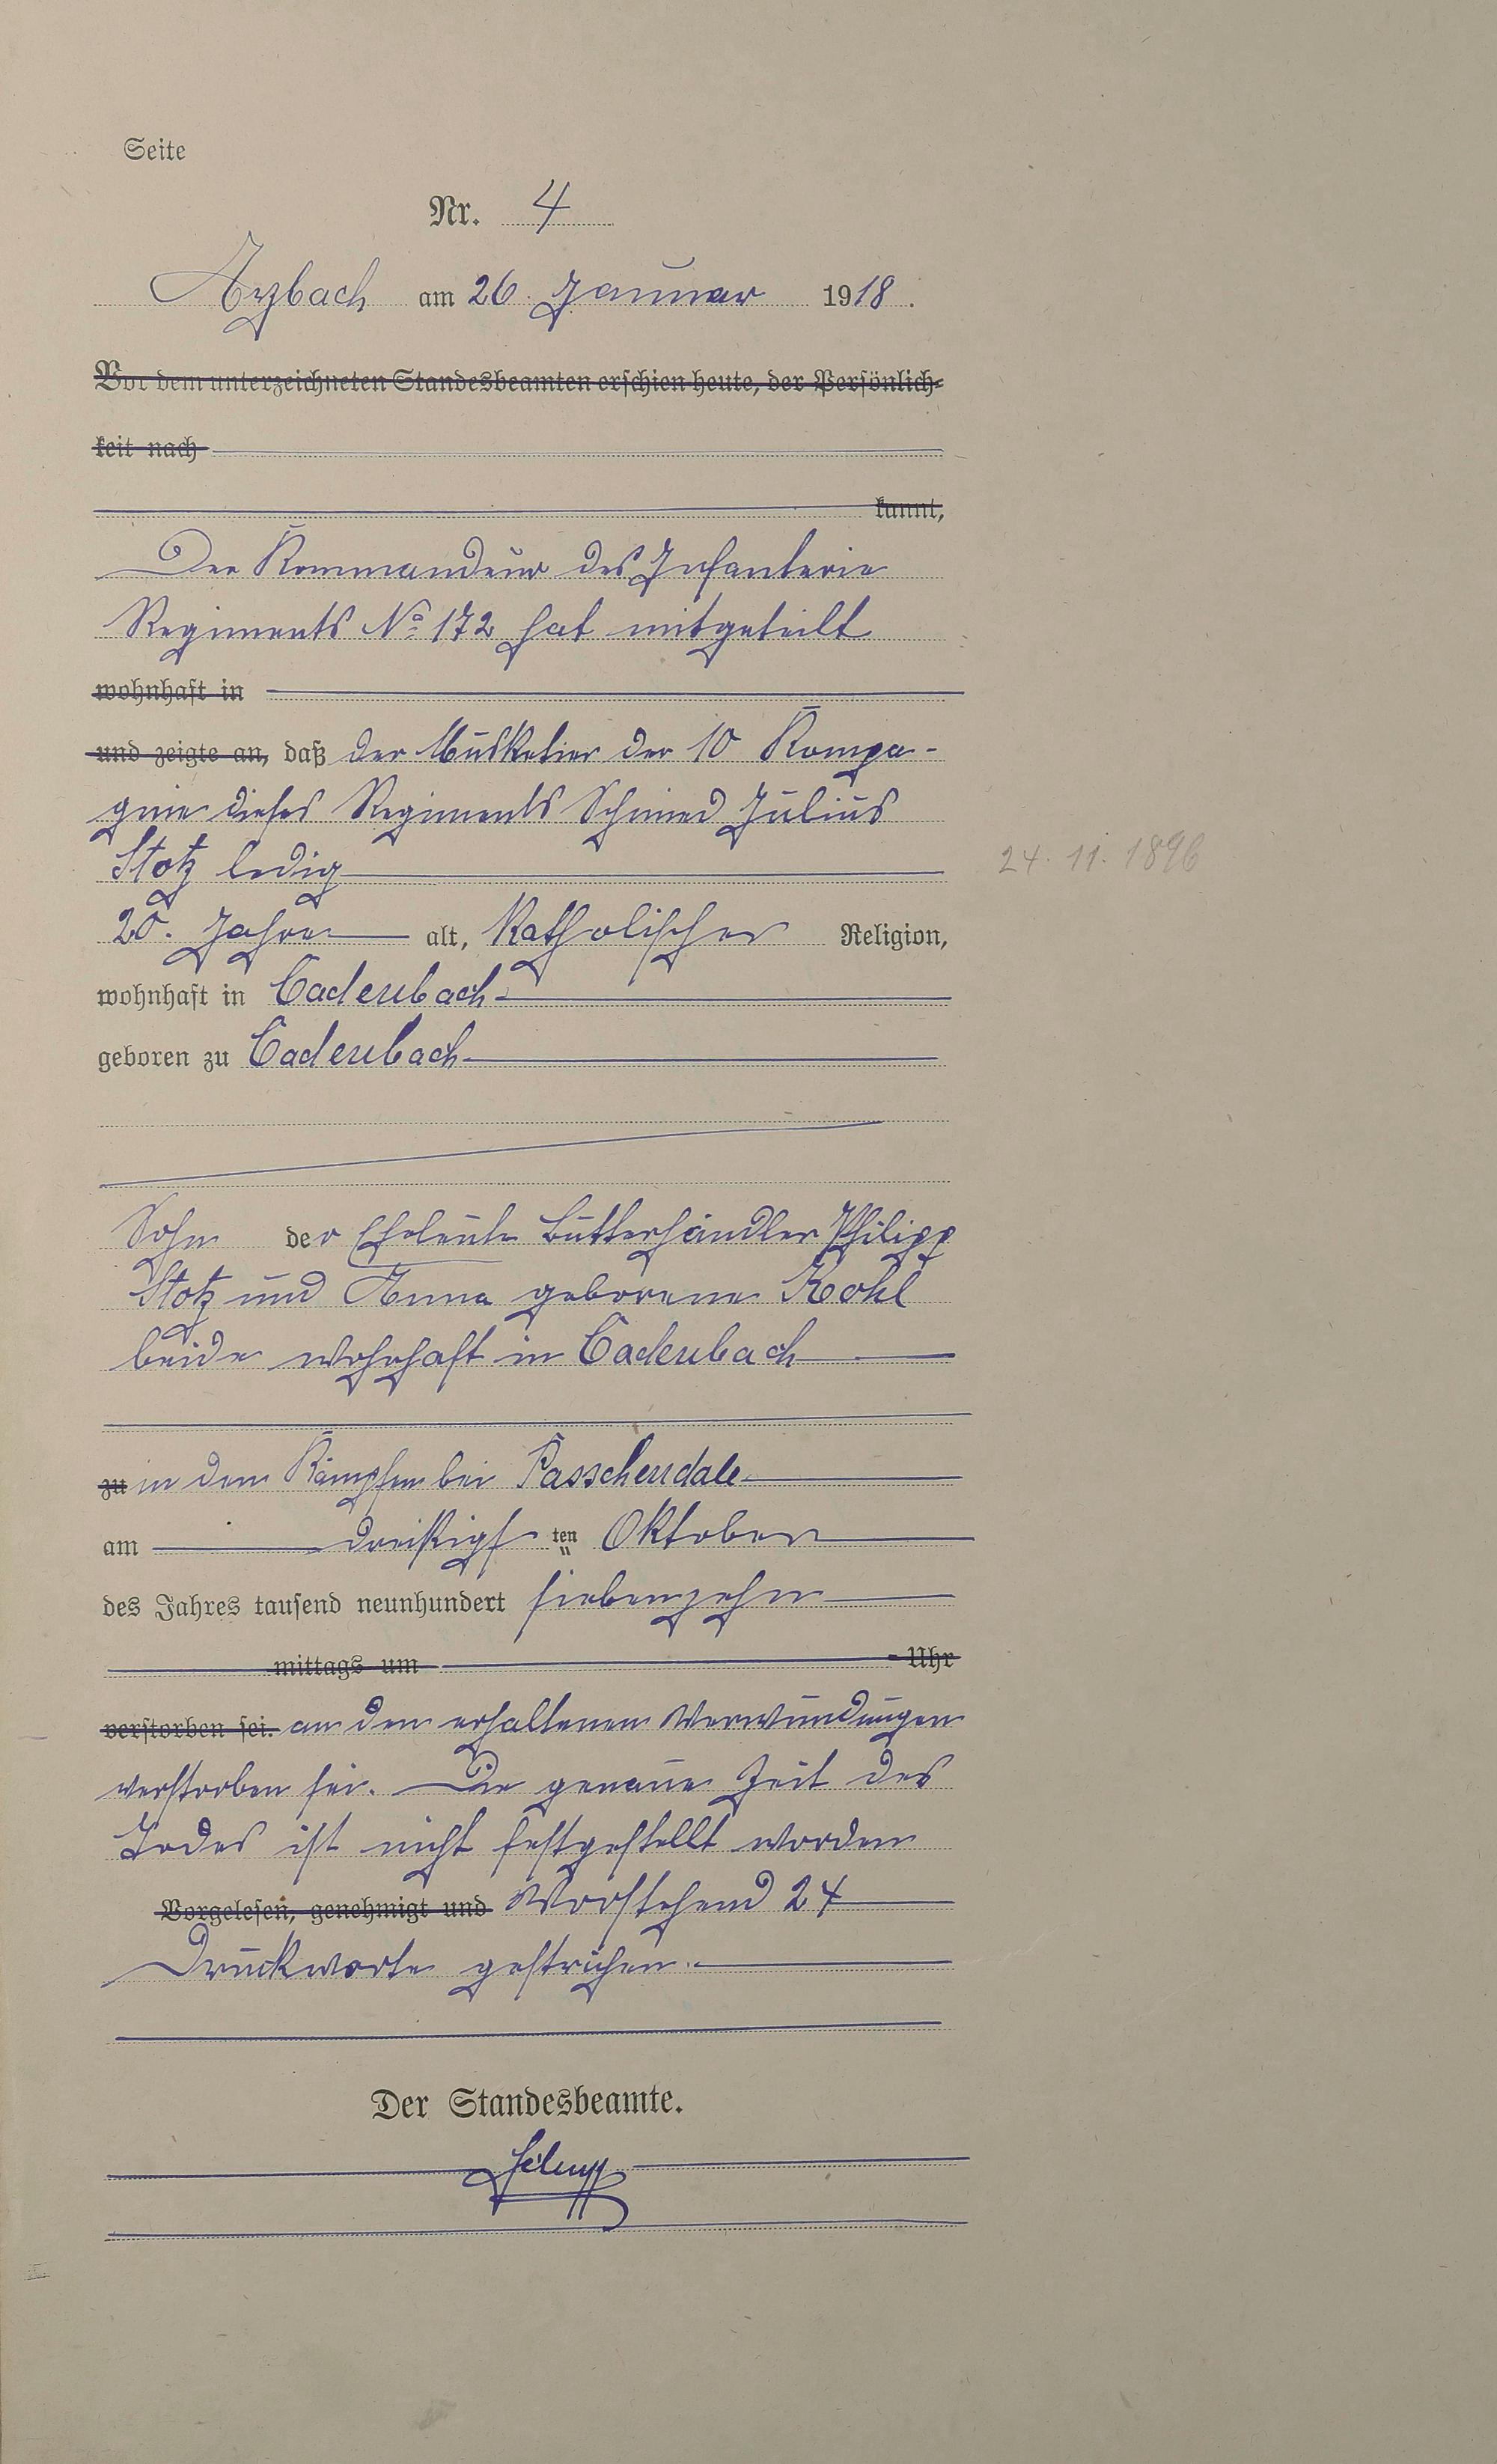 Seite
Nr. 4
Arzbach am 26. Januar 1918.
Vor dem unterzeichneten Standesbeamten erschien heute, der Persönlich-
keit nach
kannt,
Der Kommandeur des Infanterie
Regiments No 172 hat mitgeteilt
wohnhaft in
und zeigte an, daß der Musketier der 10 Kompa-
gnie dieses Regiments Schmied Julius
Stotz ledig
24. 11. 1896
20. Jahre alt, Katholischer Religion,
wohnhaft in Cadenbach
geboren zu Cadenbach
Sohn der Eheleute Butterhändler Philipp
Stotz und Anna geborene Kohl
beide wohnhaft in Cadenbach
zu in den Kämpfen bei Passchendale
am dreißigsten Oktober
des Jahres tausend neunhundert siebenzehn
mittags um Uhr
verstorben sei. an den erhaltenen Verwundungen
verstorben sei. Die genaue Zeit des
Todes ist nicht festgestellt worden
Vorgelesen, genehmigt und Vorstehend 24
Druckworte gestrichen.
Der Standesbeamte.